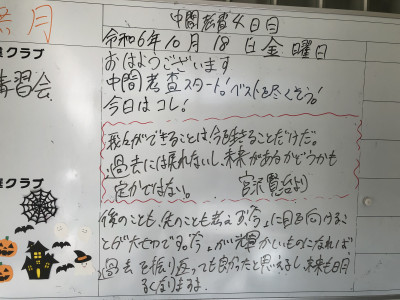 無月
クラブ
講習会
クラブ
中間考査4日目
令和6年10月18日金曜日
おはようございます
中間考査スタート！ベストを尽くそう！
今日はコレ！
我々ができることは、今を生きることだけだ。
過去には戻れないし、未来があるかどうかも
定かではない。 宮沢賢治より
後のことも、先のことも考えず「今」に目を向けるこ
とが大切です。「今」が輝かしいものになれば
過去を振り返っても良かったと思えるし、未来も明
るくなりますよ。